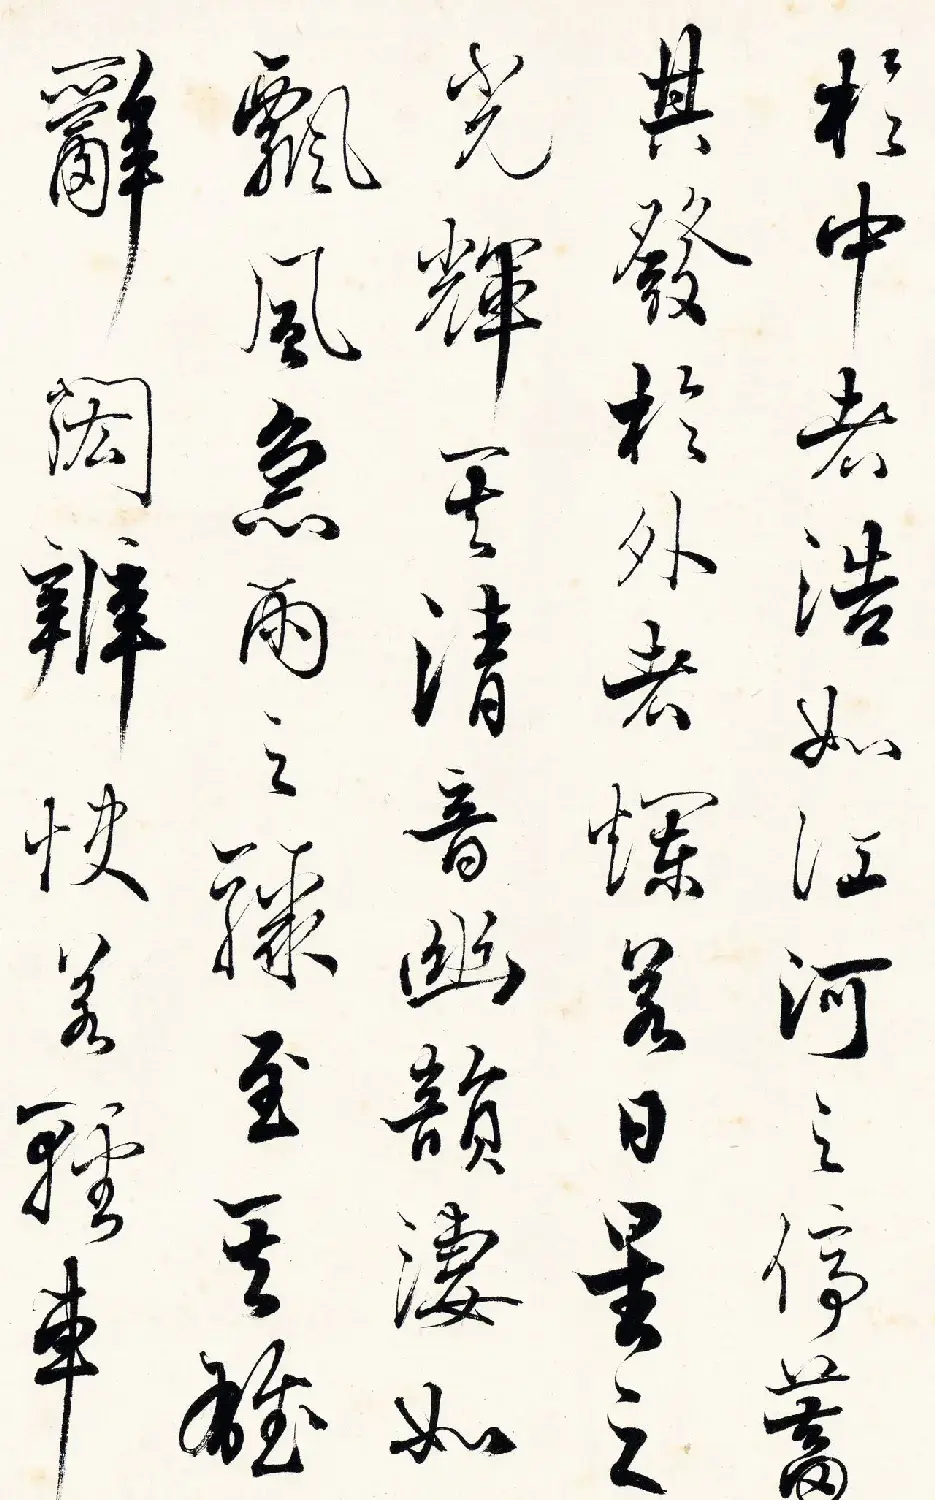 於中者浩如江河之停蓄
其發於外者爛若日星之
光輝其清音幽韻淒如
飄風急雨之驟至其雄
辭閎辯快若輕車